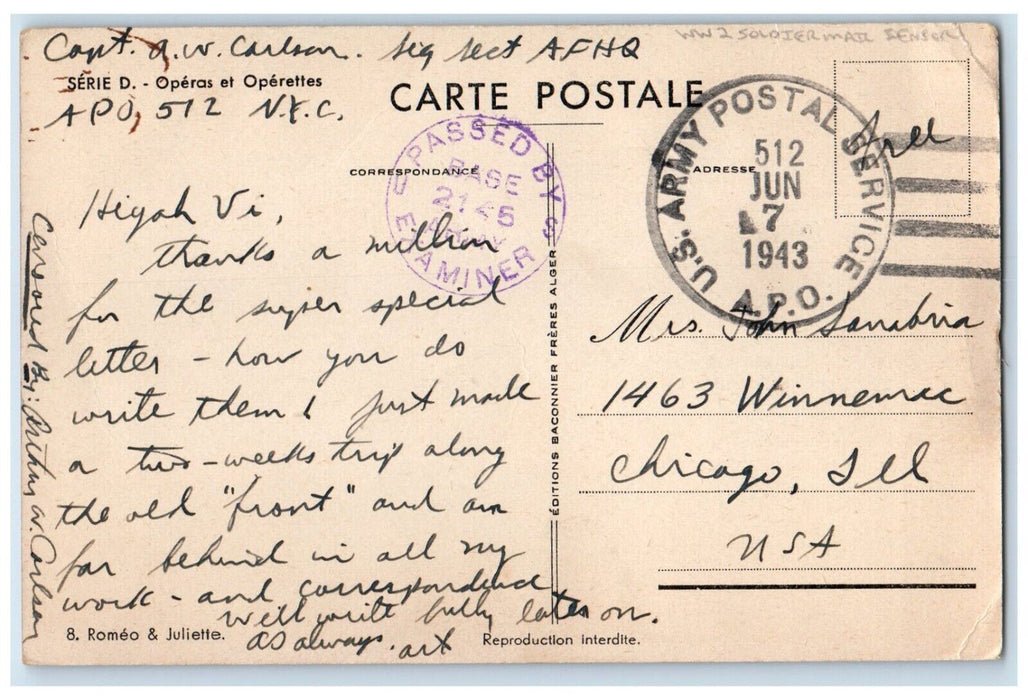 Capt. A. W. Carlson. Sig Sect AFHQ
WW2 SOLDIER MAIL SENSOR
SÉRIE D. - Opéras et Opérettes
APO, 512 N.Y.C.
CARTE POSTALE
CORRESPONDANCE
ADRESSE
PASSED BY
BASE
ARMY
EXAMINER
U.S. ARMY POSTAL SERVICE
512
JUN
7
1943
A.P.O.
free
Hiyah Vi,
thanks a million
for the super special
letter - how you do
write them! Just made
a two-weeks trip along
the old "front" and am
far behind in all my
work - and correspondence
will write fully later on.
as always. art
Censored By: Arthur W. Carlson
ÉDITIONS BACONNIER FRÈRES ALGER
Mrs. John Sanabria
1463 Winnemac
Chicago, Ill
USA
8. Roméo & Juliette.
Reproduction interdite.